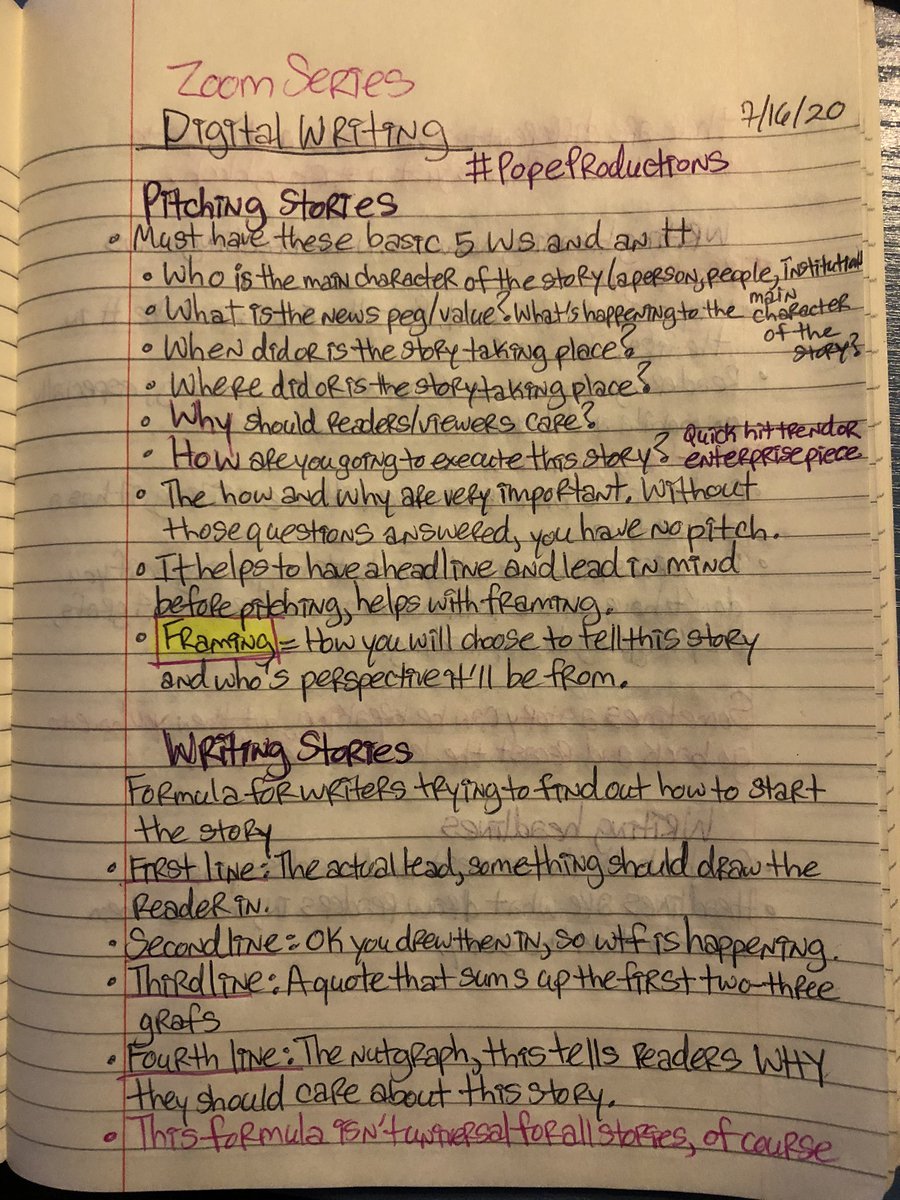 Zoom Series
Digital Writing
7/16/20
#PopeProductions
Pitching Stories
• Must have these basic 5 Ws and an H
• Who is the main character of the story (a person, people, institution
• What is the news peg/value? What's happening to the main character of the story?
• When did or is the story taking place?
• Where did or is the story taking place?
• Why should readers/viewers care?
• How are you going to execute this story? Quick hit trend or enterprise piece
• The how and why are very important. Without
those questions answered, you have no pitch.
• It helps to have a headline and lead in mind
before pitching, helps with framing.
• Framing = How you will choose to tell this story
and who's perspective it'll be from.
Writing Stories
Formula for writers trying to find out how to start
the story
• First line: The actual lead, something should draw the
reader in.
• Second line: OK you drew then in, so wtf is happening.
• Third line: A quote that sums up the first two-three
grafs
• Fourth line: The nutgraph, this tells readers WHY
they should care about this story.
• This formula isn't universal for all stories, of course